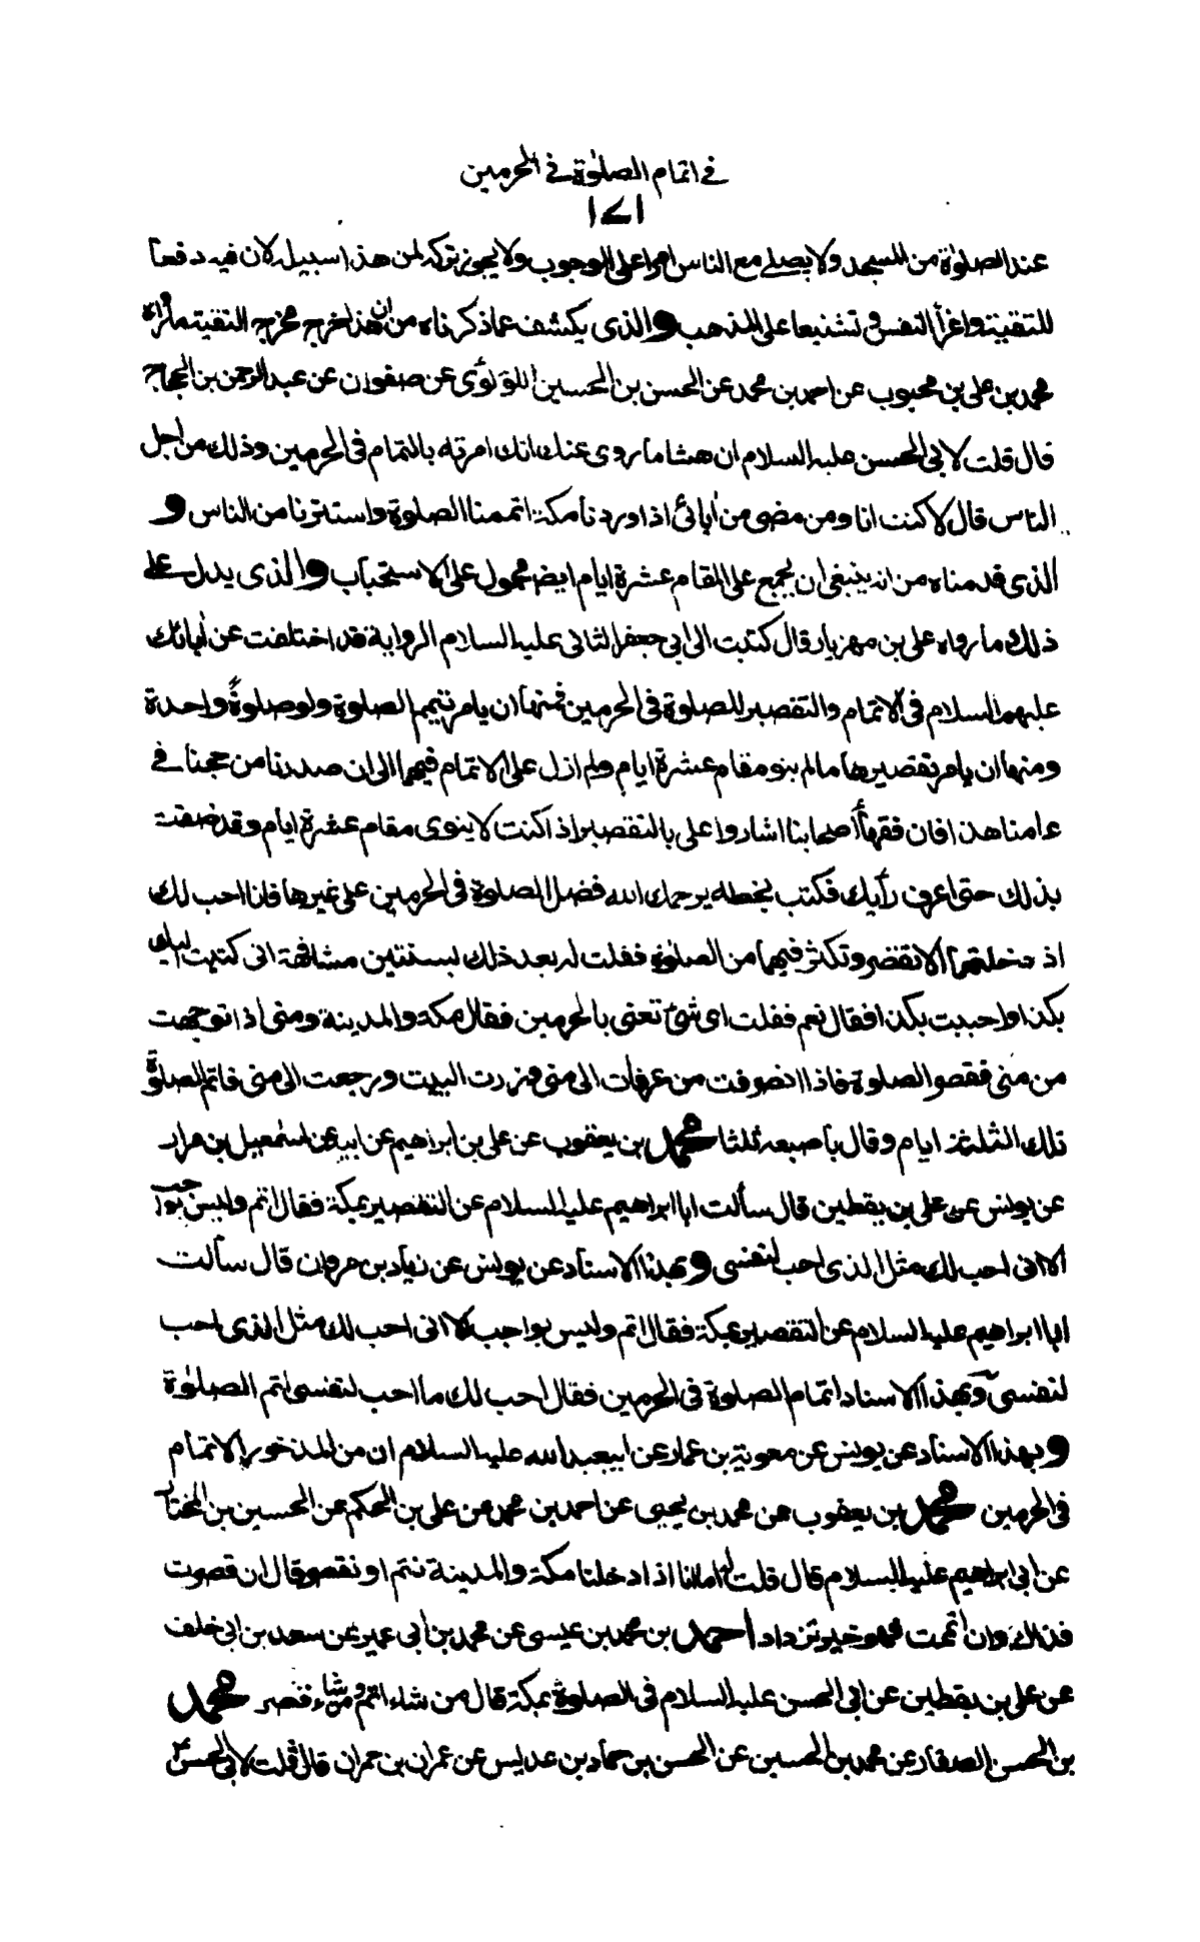 في اتمام الصلوٰة في الحرمين
١٧١
عند الصلوٰة من المسجد ولا يصلي مع الناس امرا على الوجوب ولا يجوز تركه لمن هذا سبيله لان فيه دفعا
للتقية واغرأ النفس وتشنيعا على المذهب والذى يكشف عما ذكرناه من ان هذا خرج مخرج التقية ما رواه
محمد بن على بن محبوب عن احمد بن محمد عن الحسن بن الحسين اللؤلؤى عن صفوان عن عبد الرحمن بن الحجاج
قال قلت لابى الحسن عليه السلام ان هشاما روى عنك انك امرته بالتمام فى الحرمين وذلك من اجل
الناس قال لا كنت انا ومن مضى من اٰبائى اذا وردنا مكة اتممنا الصلوة واستترنا من الناس و
الذى قدمناه من انه ينبغى ان يجمع على المقام عشرة ايام ايض محمول على الاستحباب والذى يدل على
ذلك ما رواه على بن مهزيار قال كتبت الى ابى جعفر الثانى عليه السلام الرواية قد اختلفت عن اٰبائك
عليهم السلام فى الاتمام والتقصير للصلوة فى الحرمين فمنها ان يامر بتيمم الصلوة ولو صلوةً واحدة
ومنها ان يامر بتقصيرها مالم ينو مقام عشرة ايام ولم ازل على الاتمام فيهما الى ان صددنا من حجنا في
عامنا هذا فان فقهأ اصحابنا اشاروا على بالتقصير اذا كنت لا ينوى مقام عشرة ايام وقد ضقت
بذلك حتى اعرف رأيك فكتب بخطه يرحمك الله فضل الصلوة فى الحرمين على غيرها فانا احب لك
اذ دخلتهما الا تقصر وتكثر فيهما من الصلوٰة فقلت له بعد ذلك بسنتين مشافهة انى كتبت اليك
بكذا واحببت بكذا فقال نعم فقلت اى شئ تعنى بالحرمين فقال مكة والمدينة ومنى اذا توجهت
من منى فقصر الصلوة فاذا انصرفت من عرفات الى منى وزرت البيت ورجعت الى منى فاتم الصلوة
تلك الثلثة ايام وقال باصبعه ثلثا محمد بن يعقوب عن على بن ابراهيم عن ابيه عن اسمٰعيل بن مرار
عن يونس عن على بن يقطين قال سألت ابا ابراهيم عليه السلام عن التقصير بمكة فقال اتم وليس بواجب
الا انى احب لك مثل الذى احب لنفسى وبهذا الاسناد عن يونس عن زياد بن مروان قال سألت
ابا ابراهيم عليه السلام عن التقصير بمكة فقال اتم وليس بواجب الا انى احب لك مثل الذى احب
لنفسى وبهذا الاسناد اتمام الصلوة فى الحرمين فقال احب لك ما احب لنفسى اتم الصلوٰة
وبهذا الاسناد عن يونس عن معوية بن عمار عن ابيعبد الله عليه السلام ان من المذخور الاتمام
فى الحرمين محمد بن يعقوب عن محمد بن يحيى عن احمد بن محمد عن على بن الحكم عن الحسين بن المختار
عن ابى ابراهيم عليه السلام قال قلت له انا اذا دخلنا مكة والمدينة نتم او نقصر قال ان قصرت
فذاك وان اتممت فهو خير تزداد احمد بن محمد بن عيسى عن محمد بن ابى عمير عن سعد بن ابى خلف
عن على بن يقطين عن ابى الحسن عليه السلام فى الصلوة بمكة قال من شاء اتم ومن شاء قصر محمد
بن الحسن الصفار عن محمد بن الحسين عن الحسن بن حماد بن عديس عن عمران بن حمران قال قلت لابى الحسن